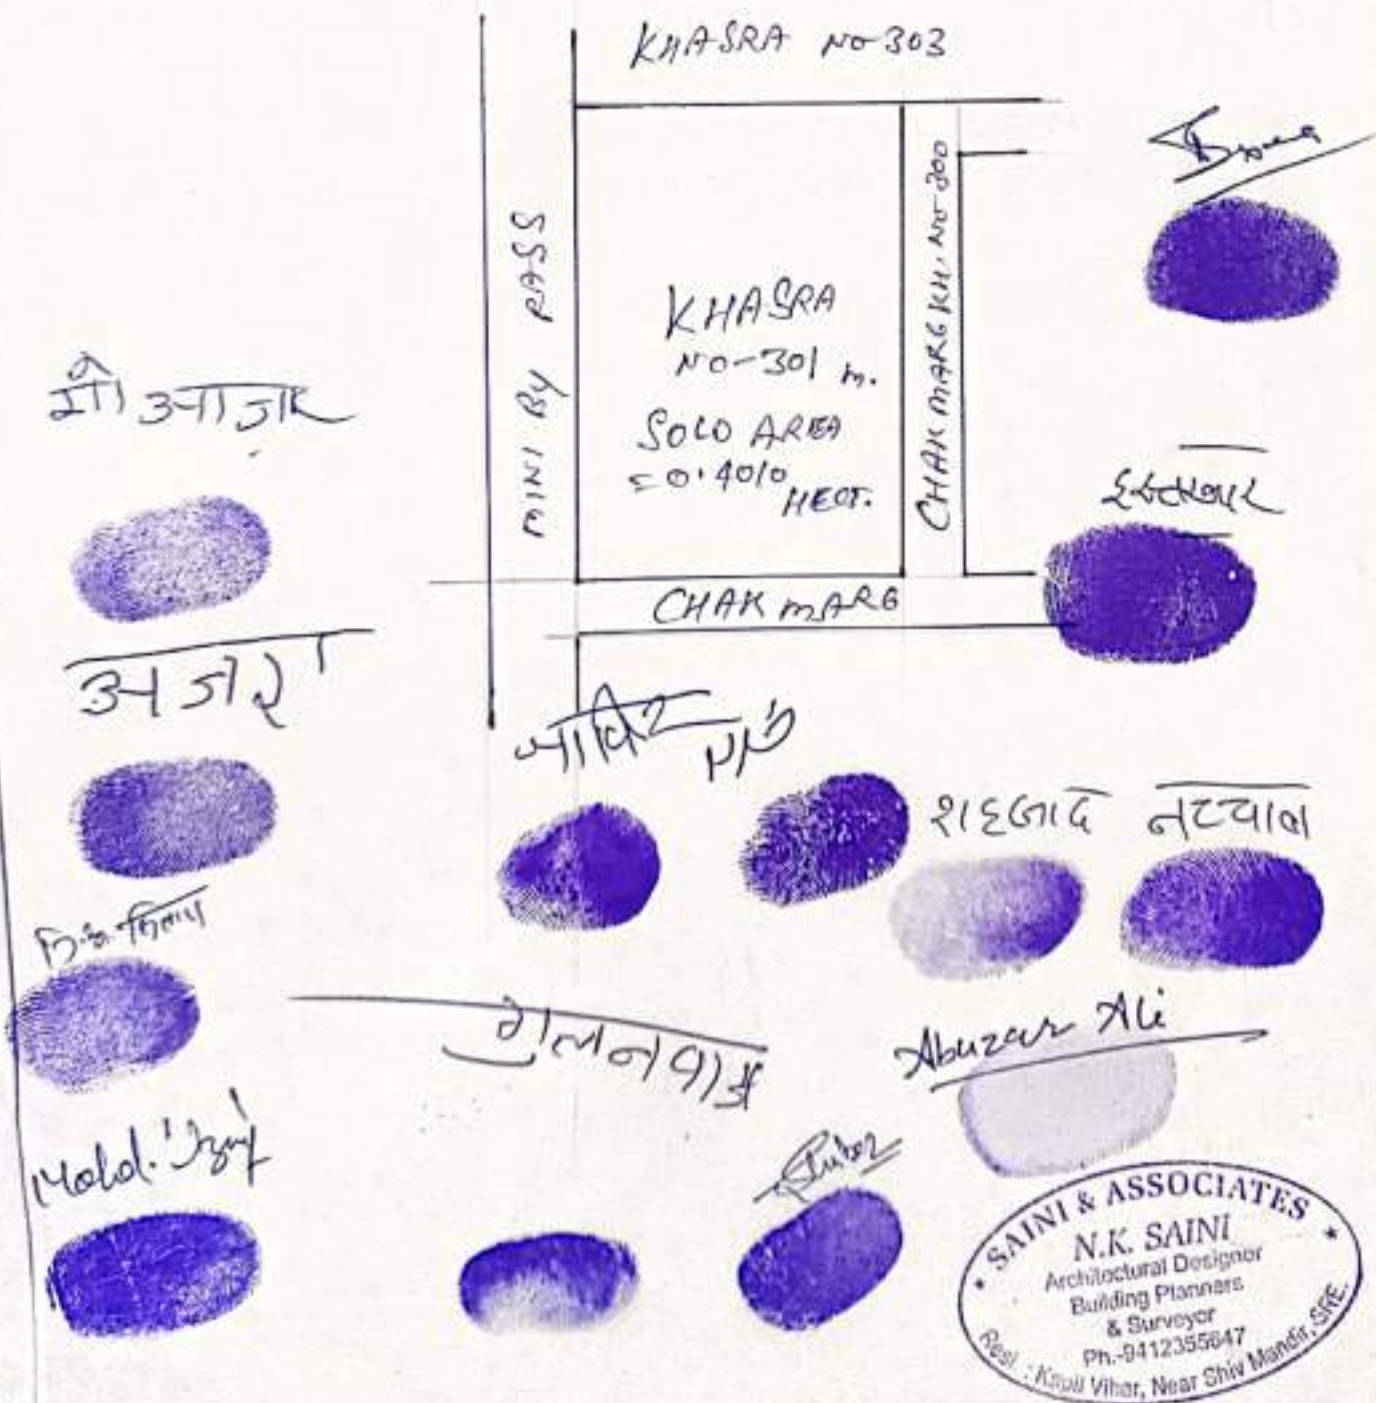 KHASRA NO-303
MINI By PASS
KHASRA
NO-301 m.
SOLD AREA
=0.4010
HECT.
CHAK MARG KH. NO-300
CHAK MARG
मौ आजाद
अजरा
शहजाद
नटयाब
गुलनवाज
Abuzar Ali
Mohd.
SAINI & ASSOCIATES
N.K. SAINI
Architectural Designer
Building Planners
& Surveyor
Ph.-9412355647
Resi : Kapil Vihar, Near Shiv Mandir, SRE.